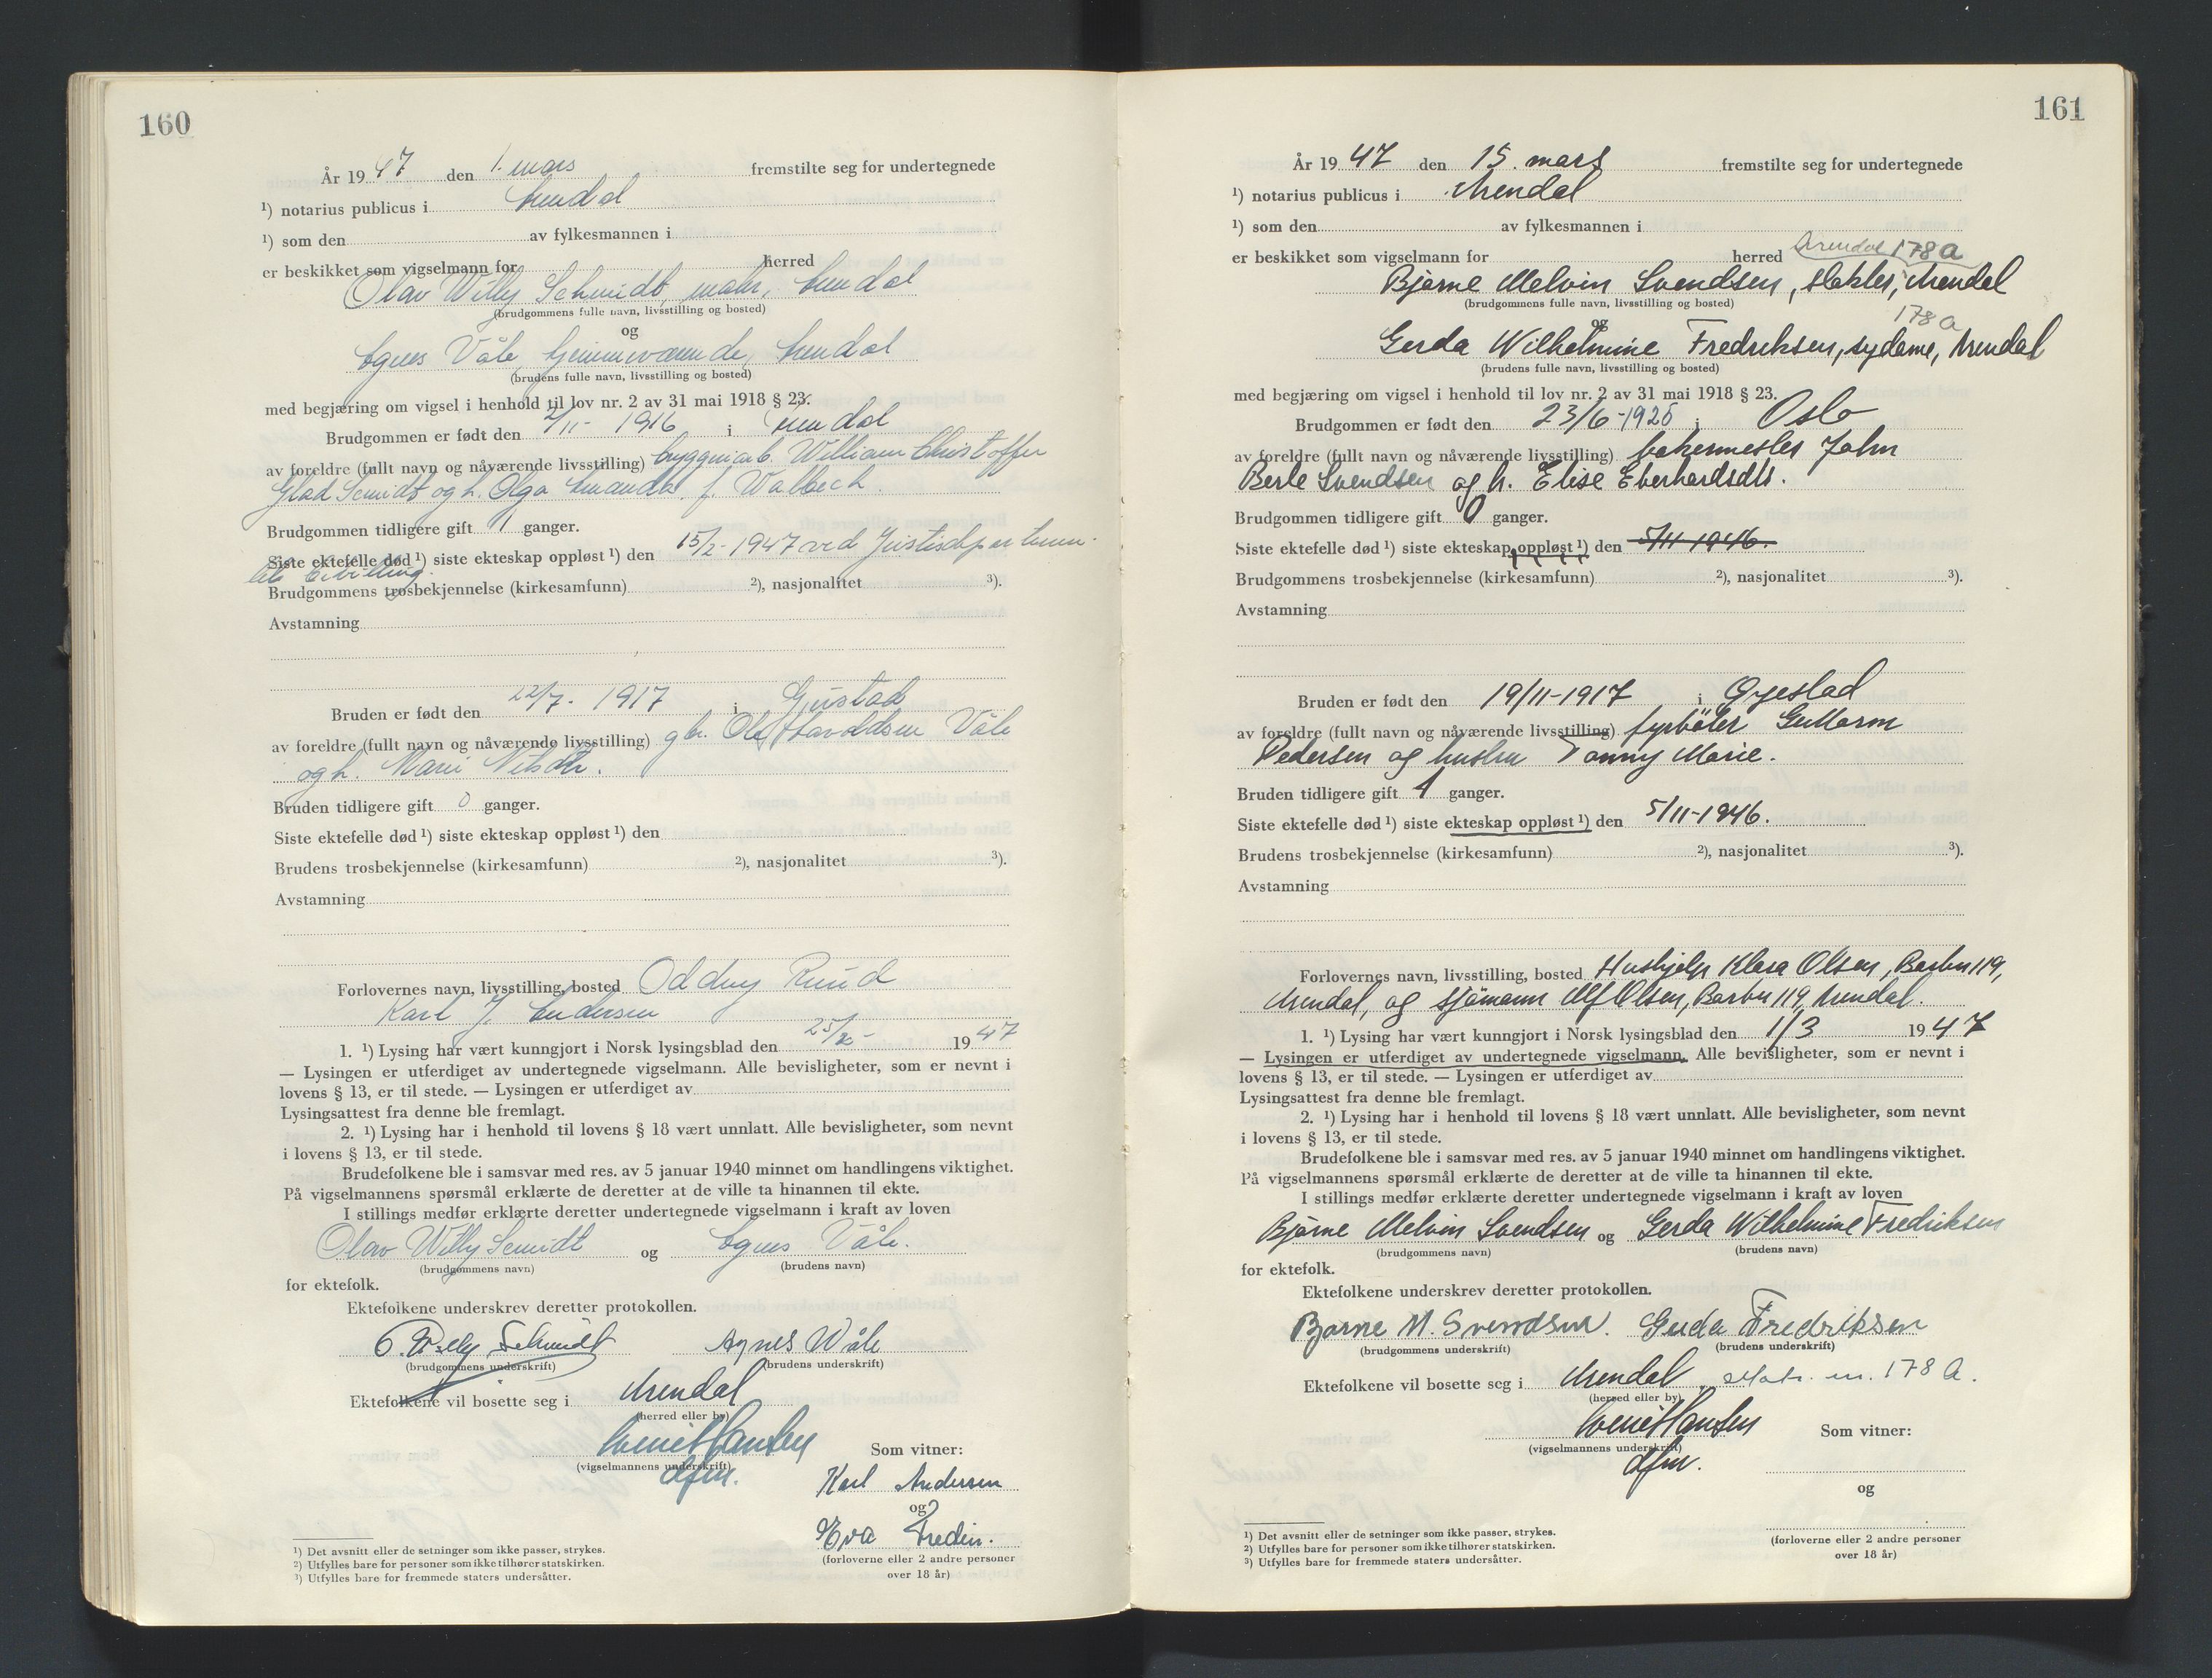 160
År 19 47 den 1. mars fremstilte seg for undertegnede
¹) notarius publicus i Arendal
¹) som den av fylkesmannen i
er beskikket som vigselmann for herred
Olav Willy Schmidt, maler, Arendal
(brudgommens fulle navn, livsstilling og bosted)
og
Agnes Våle, hjemmeværende, Arendal
(brudens fulle navn, livsstilling og bosted)
med begjæring om vigsel i henhold til lov nr. 2 av 31 mai 1918 § 23.
Brudgommen er født den 2/11- 1916 i Arendal
av foreldre (fullt navn og nåværende livsstilling) bryggeriarb. William Christoffer
Glad Scmidt og h. Olga Amanda f. Walbech.
Brudgommen tidligere gift 1 ganger.
Siste ektefelle død ¹) siste ekteskap oppløst ¹) den 15/2- 1947 ved Justisdepartemen-
tets bevilling.
Brudgommens trosbekjennelse (kirkesamfunn) ²), nasjonalitet ³).
Avstamning
Bruden er født den 22/7- 1917 i Gjerstad
av foreldre (fullt navn og nåværende livsstilling) gbr. Ole Haraldsen Våle
og h. Marie Nilsdtr.
Bruden tidligere gift 0 ganger.
Siste ektefelle død ¹) siste ekteskap oppløst ¹) den
Brudens trosbekjennelse (kirkesamfunn) ²), nasjonalitet ³).
Avstamning
Forlovernes navn, livsstilling, bosted Oddny Ruud
Karl J. Andersen
1. ¹) Lysing har vært kunngjort i Norsk lysingsblad den 25/2- 19 47
— Lysingen er utferdiget av undertegnede vigselmann. Alle bevisligheter, som er nevnt i
lovens § 13, er til stede. — Lysingen er utferdiget av
Lysingsattest fra denne ble fremlagt.
2. ¹) Lysing har i henhold til lovens § 18 vært unnlatt. Alle bevisligheter, som nevnt
i lovens § 13, er til stede.
Brudefolkene ble i samsvar med res. av 5 januar 1940 minnet om handlingens viktighet.
På vigselmannens spørsmål erklærte de deretter at de ville ta hinannen til ekte.
I stillings medfør erklærte deretter undertegnede vigselmann i kraft av loven
Olav Willy Scmidt og Agnes Våle.
(brudgommens navn) (brudens navn)
for ektefolk.
Ektefolkene underskrev deretter protokollen.
O. Willy Schmidt Agnes Wåle
(brudgommens underskrift) (brudens underskrift)
Ektefolkene vil bosette seg i Arendal
(herred eller by)
Hansen
(vigselmannens underskrift)
dfm.
Som vitner:
Karl Andersen
og
Eva Fredin.
(forloverne eller 2 andre personer
over 18 år)
¹) Det avsnitt eller de setninger som ikke passer, strykes.
²) Utfylles bare for personer som ikke tilhører statskirken.
³) Utfylles bare for fremmede staters undersåtter.
161
År 19 47 den 15. mars fremstilte seg for undertegnede
¹) notarius publicus i Arendal
¹) som den av fylkesmannen i
er beskikket som vigselmann for herred Arendal 178a
Bjarne Melvin Svendsen, slakter, Arendal
(brudgommens fulle navn, livsstilling og bosted)
og 178a
Gerda Wilhelmine Fredriksen, sydame, Arendal
(brudens fulle navn, livsstilling og bosted)
med begjæring om vigsel i henhold til lov nr. 2 av 31 mai 1918 § 23.
Brudgommen er født den 23/6-1925 i Oslo
av foreldre (fullt navn og nåværende livsstilling) bakermester John
Berle Svendsen og h. Elise Eberhardsdtr.
Brudgommen tidligere gift 0 ganger.
Siste ektefelle død ¹) siste ekteskap oppløst ¹) den 5/11-1946.
Brudgommens trosbekjennelse (kirkesamfunn) ²), nasjonalitet ³).
Avstamning
Bruden er født den 19/11-1917 i Øyestad
av foreldre (fullt navn og nåværende livsstilling) fyrbøter Guttorm
Pedersen og hustru Tanny Marie.
Bruden tidligere gift 1 ganger.
Siste ektefelle død ¹) siste ekteskap oppløst ¹) den 5/11-1946.
Brudens trosbekjennelse (kirkesamfunn) ²), nasjonalitet ³).
Avstamning
Forlovernes navn, livsstilling, bosted Hushjelp Klara Olsen, Barbu 119,
Arendal, og sjømann Alf Olsen, Barbu 119, Arendal.
1. ¹) Lysing har vært kunngjort i Norsk lysingsblad den 1/3 19 47
— Lysingen er utferdiget av undertegnede vigselmann. Alle bevisligheter, som er nevnt i
lovens § 13, er til stede. — Lysingen er utferdiget av
Lysingsattest fra denne ble fremlagt.
2. ¹) Lysing har i henhold til lovens § 18 vært unnlatt. Alle bevisligheter, som nevnt
i lovens § 13, er til stede.
Brudefolkene ble i samsvar med res. av 5 januar 1940 minnet om handlingens viktighet.
På vigselmannens spørsmål erklærte de deretter at de ville ta hinannen til ekte.
I stillings medfør erklærte deretter undertegnede vigselmann i kraft av loven
Bjarne Melvin Svendsen og Gerda Wilhelmine Fredriksen
(brudgommens navn) (brudens navn)
for ektefolk.
Ektefolkene underskrev deretter protokollen.
Bjarne M. Svendsen. Gerda Fredriksen
(brudgommens underskrift) (brudens underskrift)
Ektefolkene vil bosette seg i Arendal, Matr. nr. 178 A.
(herred eller by)
Hansen
(vigselmannens underskrift)
dfm.
Som vitner:
og
(forloverne eller 2 andre personer
over 18 år)
¹) Det avsnitt eller de setninger som ikke passer, strykes.
²) Utfylles bare for personer som ikke tilhører statskirken.
³) Utfylles bare for fremmede staters undersåtter.